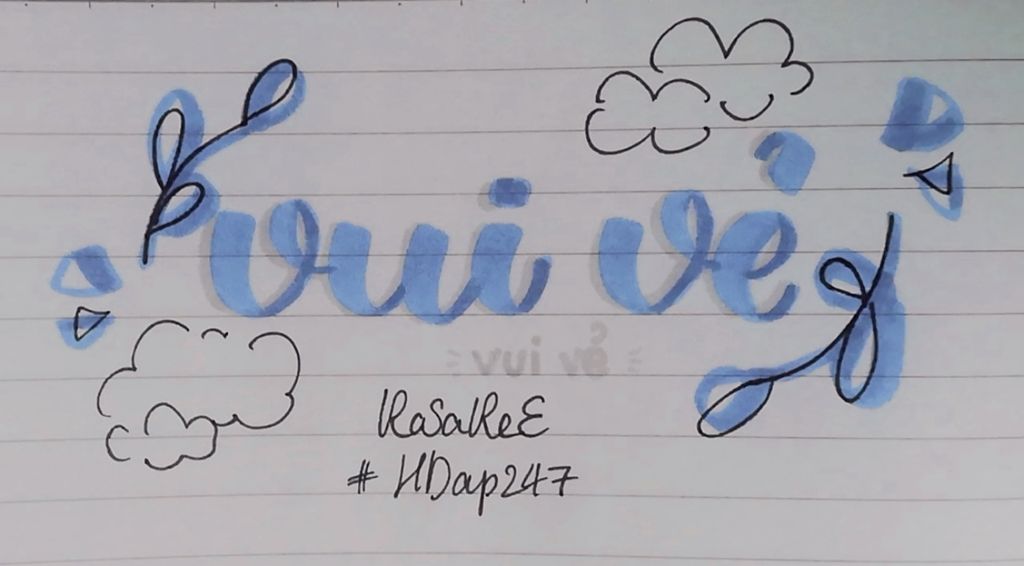 vui vẻ
= vui vẻ =
RaSaReE
# HDap247